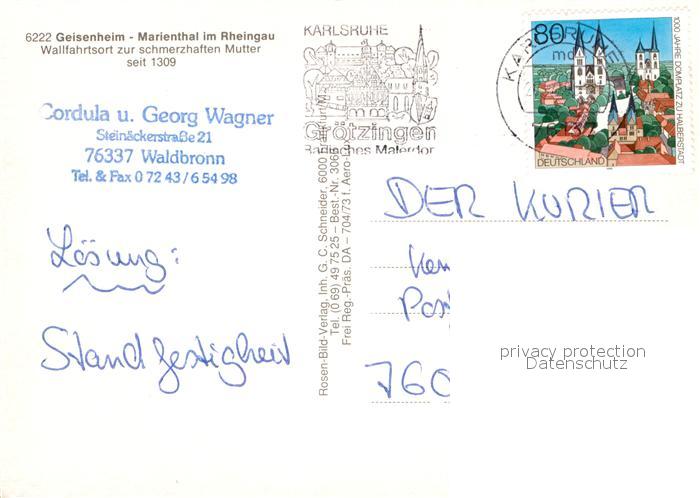 6222 Geisenheim - Marienthal im Rheingau
Wallfahrtsort zur schmerzhaften Mutter
seit 1309
Cordula u. Georg Wagner
Steinäckerstraße 21
76337 Waldbronn
Tel. & Fax 0 72 43 / 6 54 98
Lösung:
Standfestigkeit
Rosen-Bild-Verlag, Inh. G. C. Schneider, 6000 Frankfurt/M.
Tel. (0 69) 49 75 25 – Best.-Nr. 306
Frei Reg.-Präs. DA – 704/73 f. Aero-
KARLSRUHE
Grötzingen
Badisches Malerdorf
KARLSRUHE
80
1000 JAHRE DOMPLATZ ZU HALBERSTADT
DEUTSCHLAND
DER KURIER
Post
760
privacy protection
Datenschutz